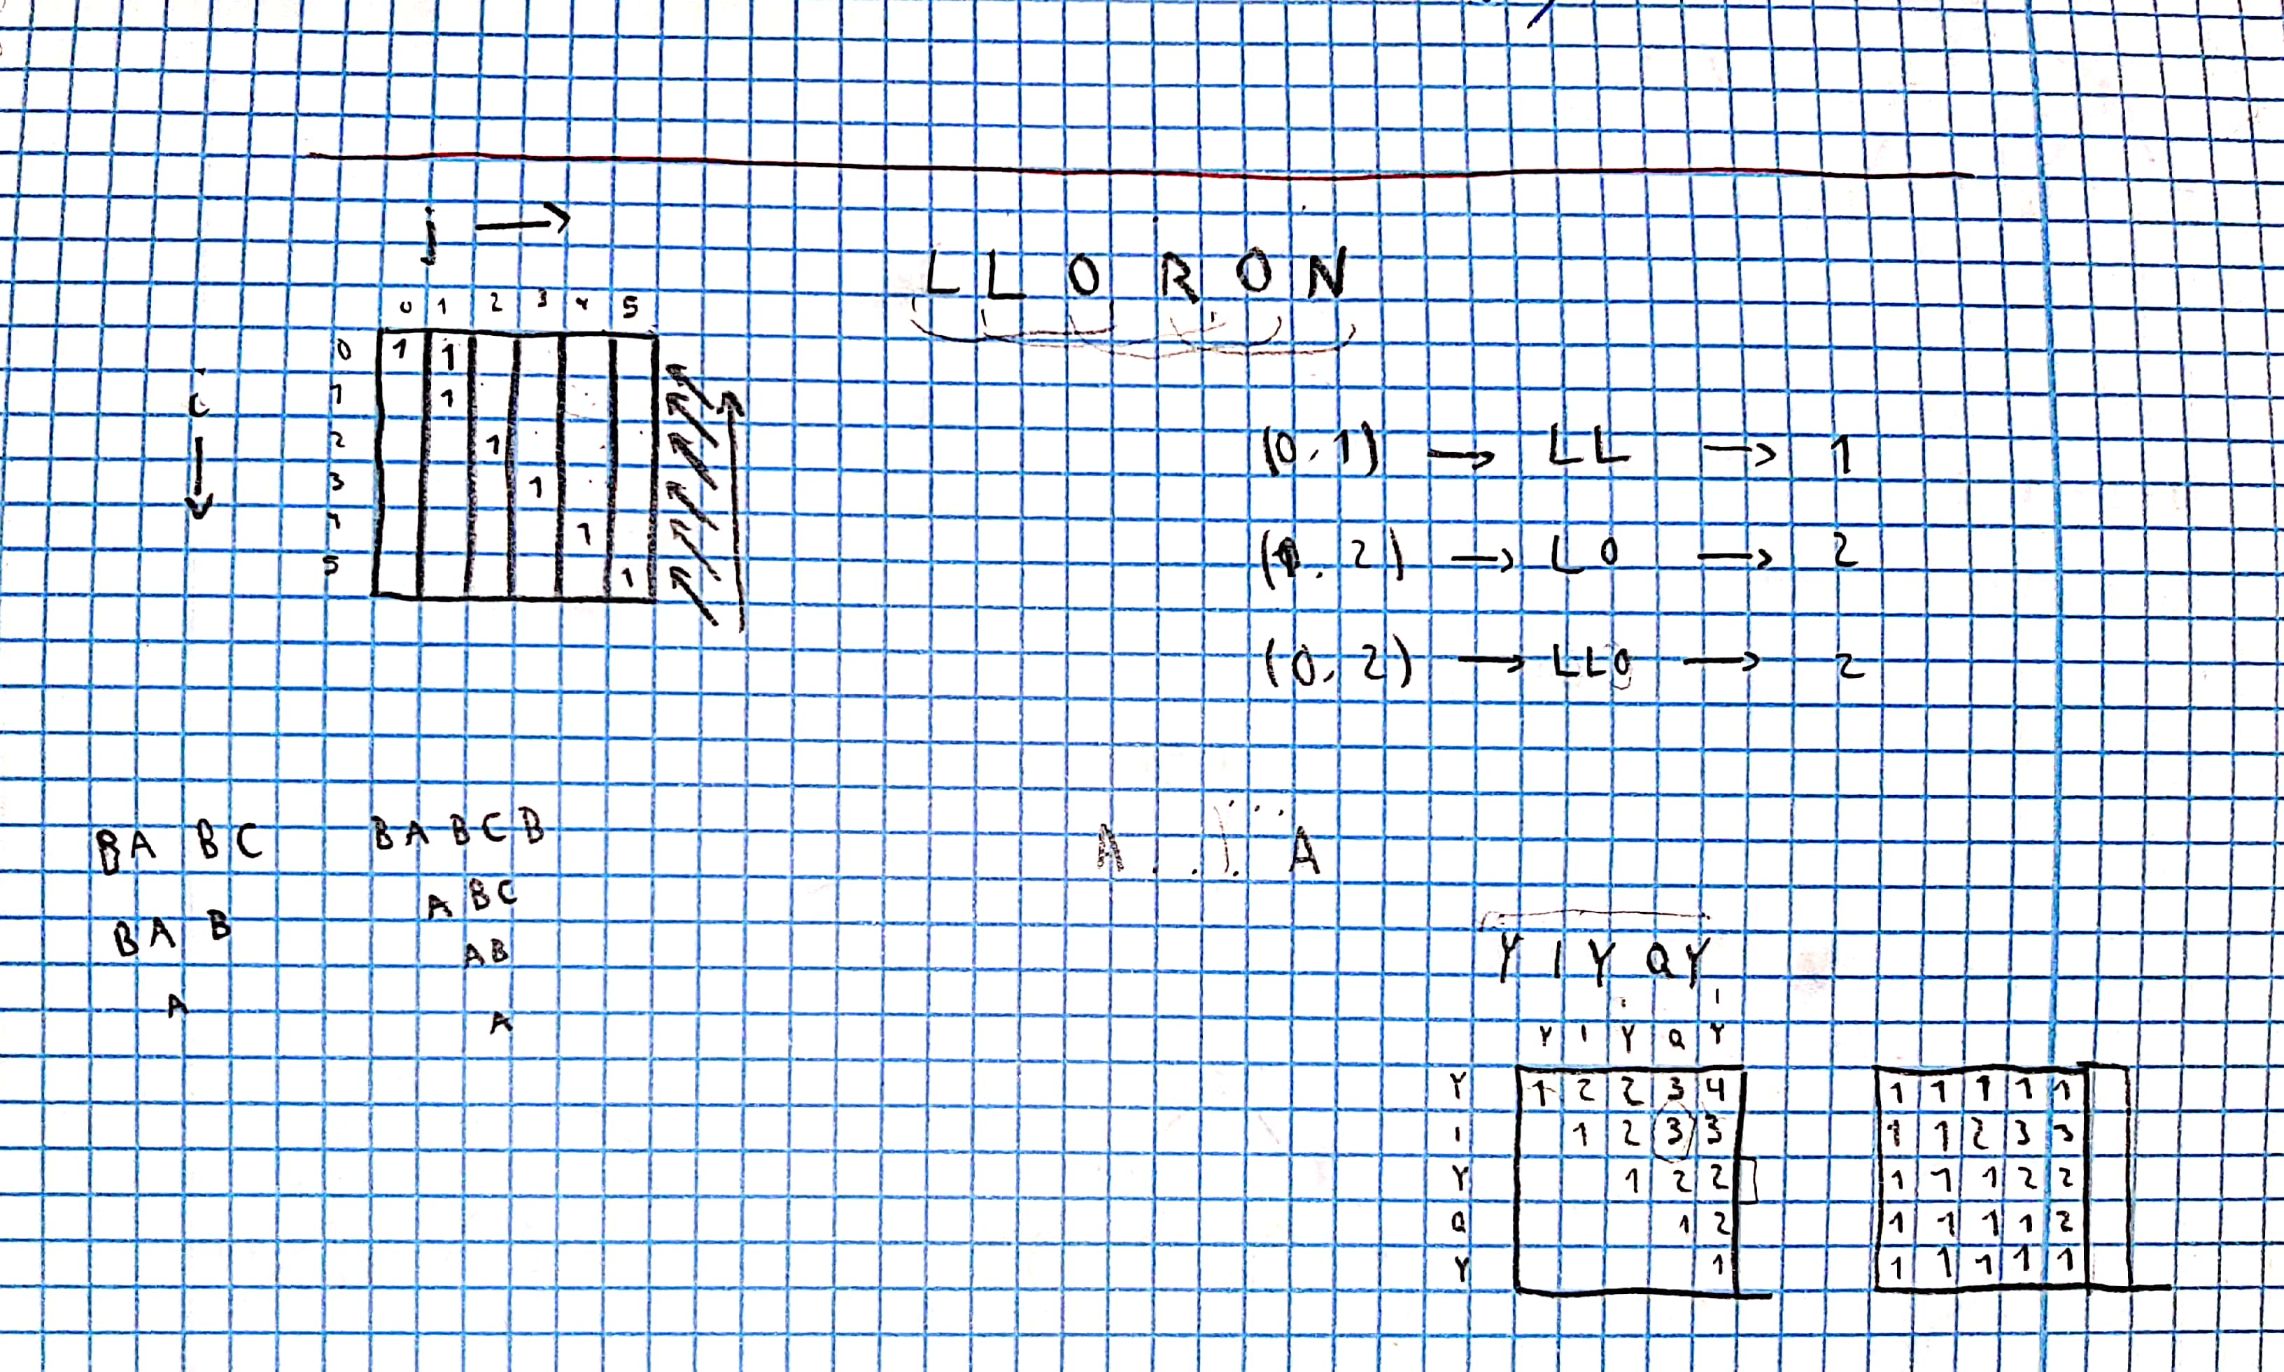 j →
L L O R O N
0 1 2 3 4 5
0 1 1
i 1 1
↓ 2 1
3 1
4 1
5 1
(0, 1) → LL → 1
(1, 2) → LO → 2
(0, 2) → LLO → 2
BA BC
BA B
A
BABCB
ABC
AB
A
A . . . A
Y I Y Q Y
Y I Y Q Y
Y 1 2 2 3 4
I 1 2 3 3
Y 1 2 2
Q 1 2
Y 1
1 1 1 1 1
1 1 2 3 3
1 1 1 2 2
1 1 1 1 2
1 1 1 1 1